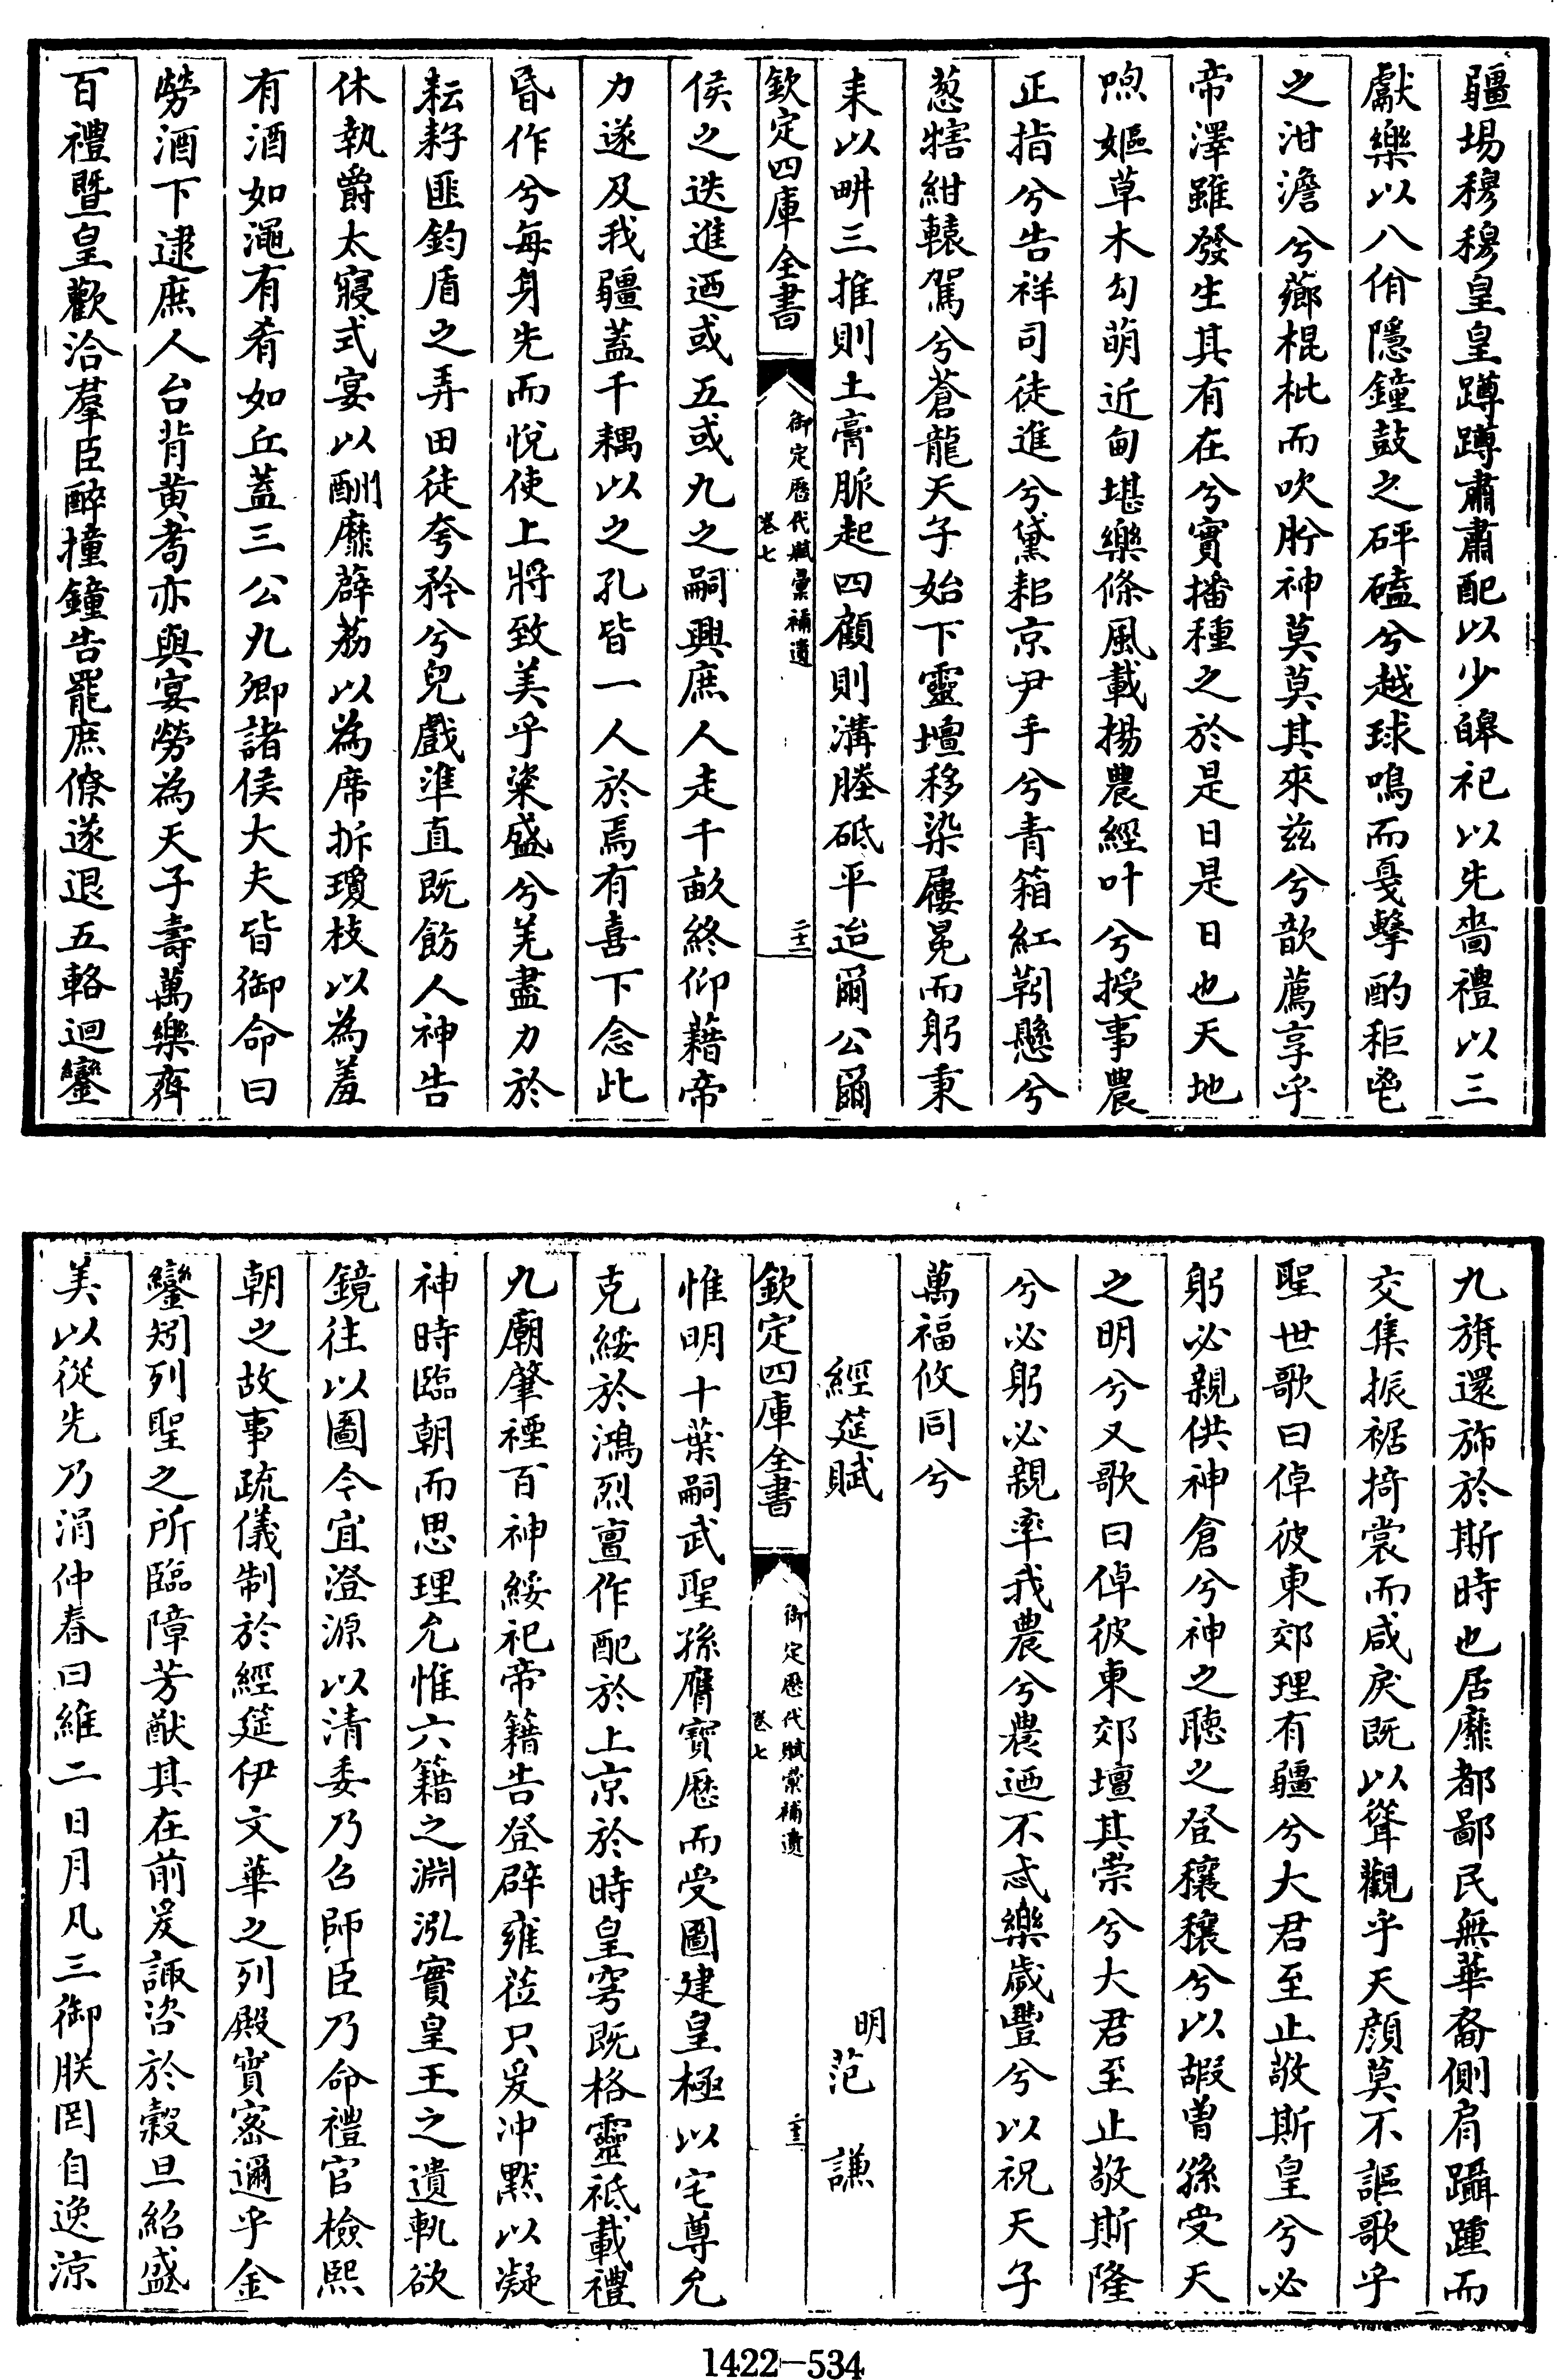 疆埸穆穆皇皇蹲蹲肅肅配以少皞祀以先嗇禮以三
獻樂以八佾隱鐘鼓之砰磕兮越球鳴而戛擊酌秬鬯
之泔澹兮薌棍枇而吹肸神莫莫其來兹兮歆薦享乎
帝澤雖發生其有在兮實播種之於是日是日也天地
喣嫗草木勾萌近甸堪樂條風載揚農經叶兮授事農
正指兮告祥司徒進兮黛耜京尹手兮青箱紅靷懸兮
葱犗紺轅駕兮蒼龍天子始下靈壇移染屨冕而躬秉
耒以畊三推則土膏脈起四顧則溝塍砥平迨爾公爾
欽定四庫全書
御定歷代賦彙補遺
卷七
二十二
侯之迭進迺或五或九之嗣興庶人走千畝終仰藉帝
力遂及我疆蓋千耦以之孔皆一人於焉有喜下念此
昏作兮每身先而悅使上將致美乎粢盛兮羌盡力於
耘耔匪鈞盾之弄田徒夸矜兮兒戲準直既飭人神告
休執爵太寢式宴以酬靡薜荔以為席折瓊枝以為羞
有酒如澠有肴如丘蓋三公九卿諸侯大夫皆御命曰
勞酒下逮庶人台背黄耉亦與宴勞為天子壽萬樂齊
百禮暨皇歡洽羣臣醉撞鐘告罷庶僚遂退五輅迴鑾
九旗還斾於斯時也居靡都鄙民無華裔側肩躡踵而
交集振裾掎裳而咸戾既以聳觀乎天顔莫不謳歌乎
聖世歌曰倬彼東郊理有疆兮大君至止敬斯皇兮必
躬必親供神倉兮神之聽之登穰穰兮以嘏曽孫受天
之明兮又歌曰倬彼東郊壇其崇兮大君至止敬斯隆
兮必躬必親率我農兮農迺不忒樂歲豐兮以祝天子
萬福攸同兮
經筵賦
明范謙
欽定四庫全書
御定歷代賦彙補遺
卷七
二十三
惟明十葉嗣武聖孫膺寶歷而受圖建皇極以宅尊允
克綏於鴻烈亶作配於上京於時皇穹既格靈祗載禮
九廟肇禋百神綏祀帝籍告登辟雍蒞只爰冲黙以凝
神時臨朝而思理允惟六籍之淵泓實皇王之遺軌欲
鏡往以圖今宜澄源以清委乃召師臣乃命禮官檢熙
朝之故事疏儀制於經筵伊文華之列殿實密邇乎金
鑾矧列聖之所臨障芳猷其在前爰諏咨於穀旦紹盛
美以從先乃涓仲春曰維二日月凡三御朕罔自逸涼
1422-534